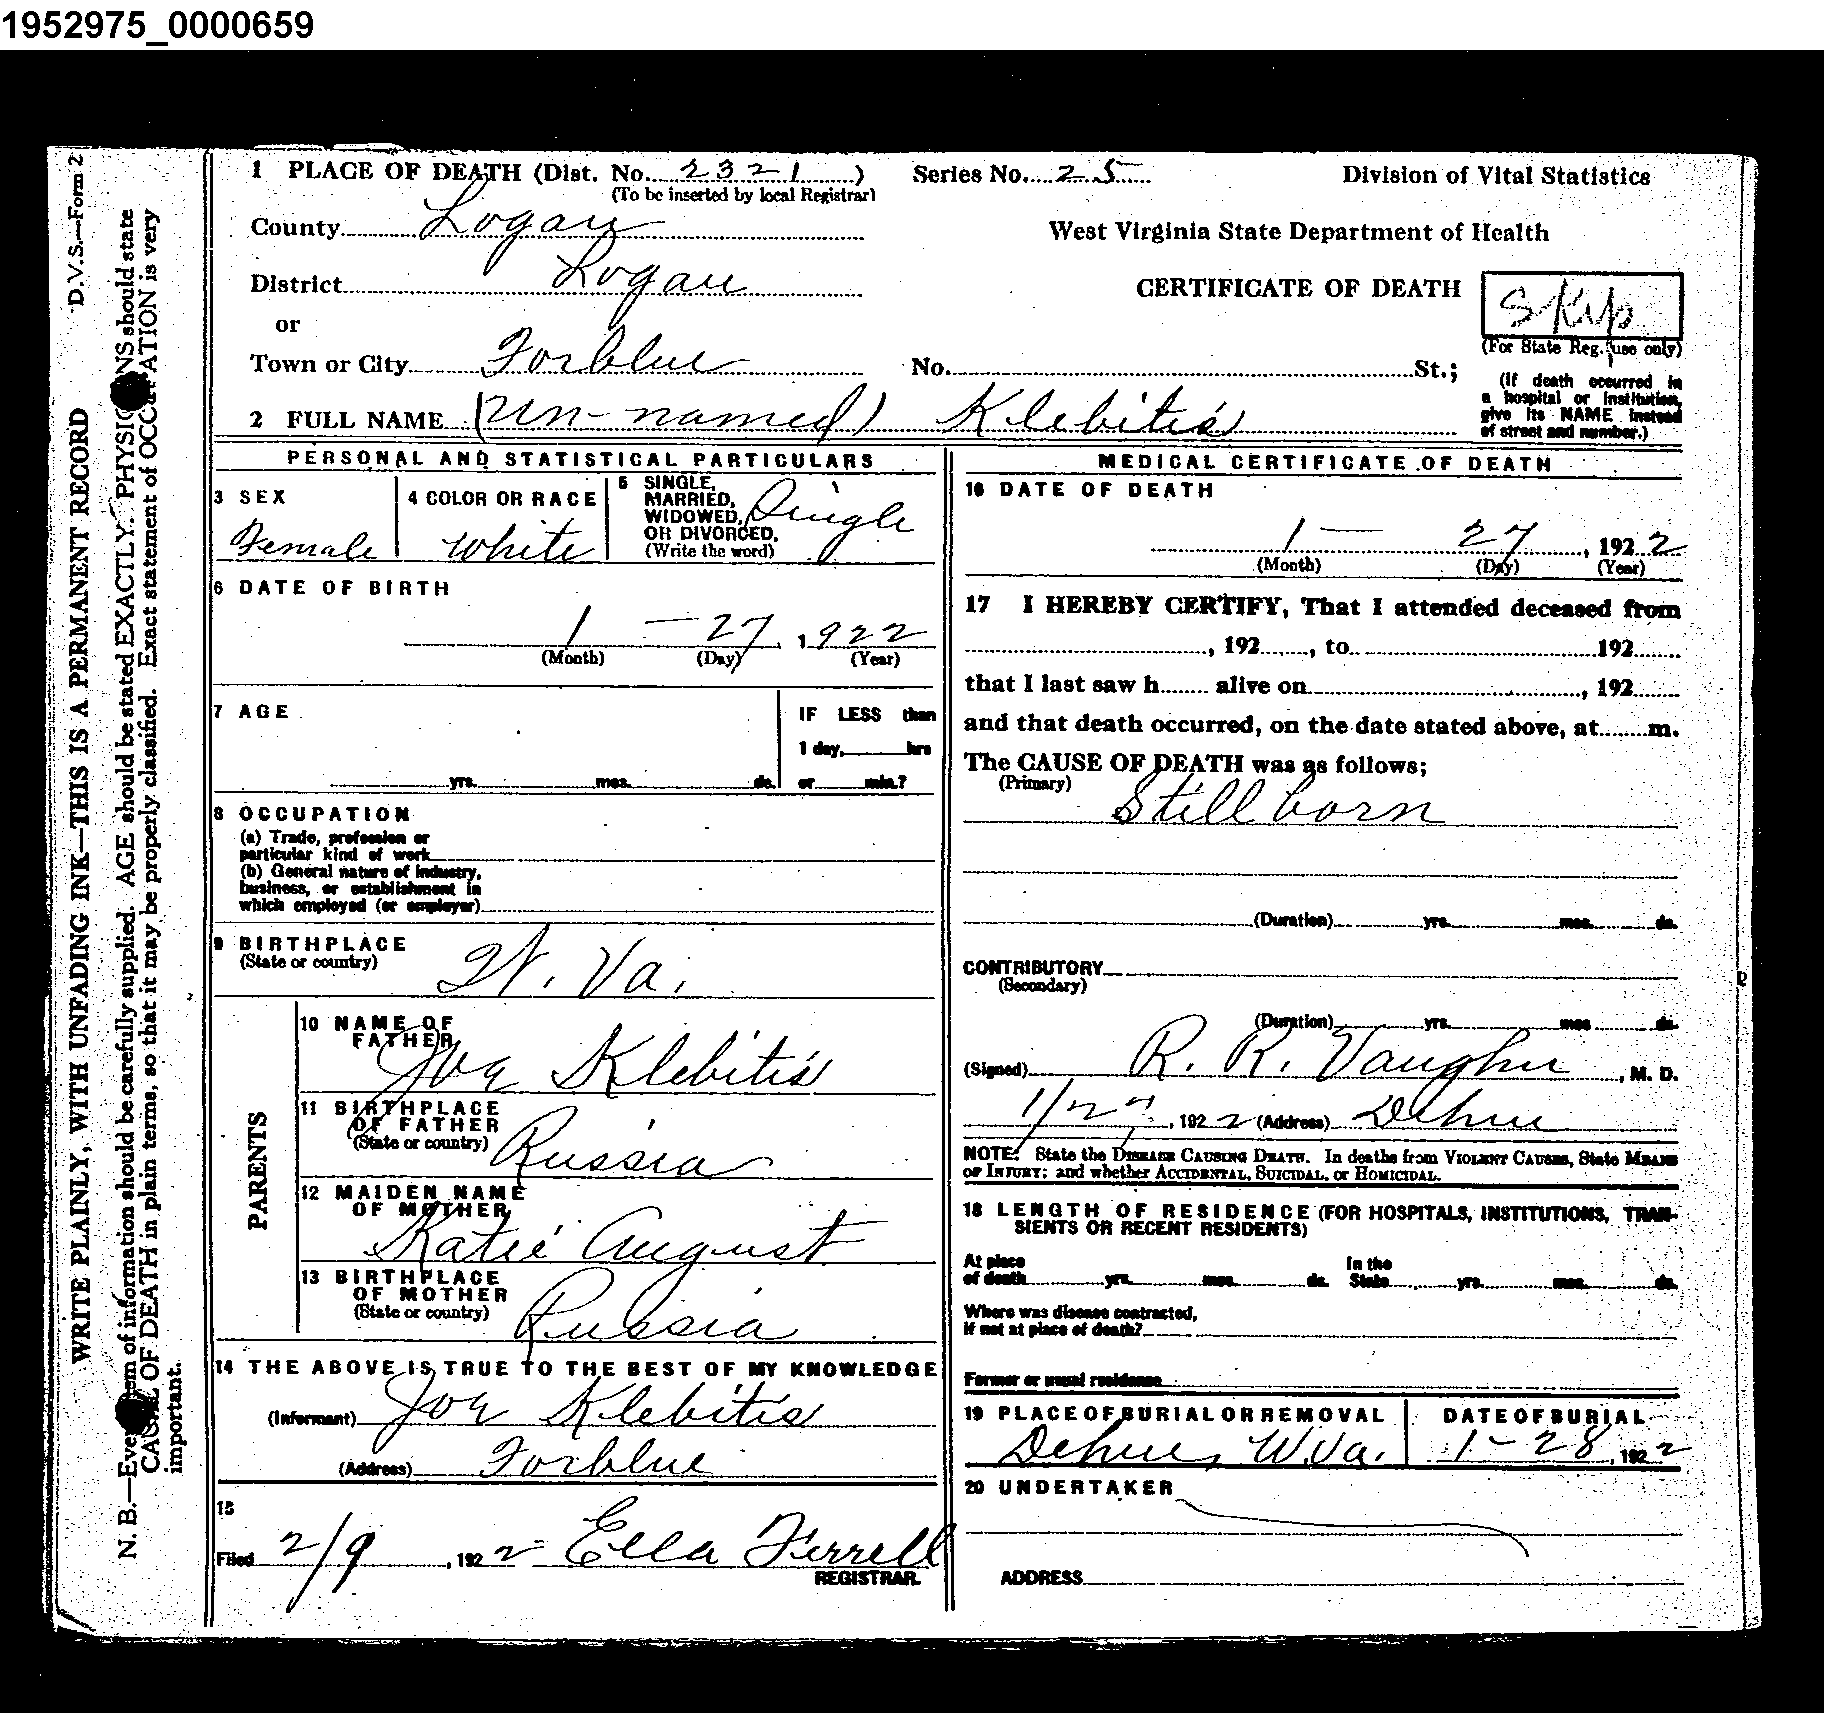 1952975_0000659
D.V.S.—Form 2
WRITE PLAINLY, WITH UNFADING INK—THIS IS A PERMANENT RECORD
N. B.—Every item of information should be carefully supplied. AGE should be stated EXACTLY. PHYSICIANS should state
CAUSE OF DEATH in plain terms, so that it may be properly classified. Exact statement of OCCUPATION is very
important.
1 PLACE OF DEATH (Dist. No. 2321) Series No. 25 Division of Vital Statistics
(To be inserted by local Registrar)
County Logan
West Virginia State Department of Health
District Logan
CERTIFICATE OF DEATH
Skip
(For State Reg. use only)
or
Town or City Forblue No. St.;
(If death occurred in
a hospital or institution,
give its NAME instead
of street and number.)
2 FULL NAME (Un-named) Klebitis
PERSONAL AND STATISTICAL PARTICULARS
3 SEX
Female
4 COLOR OR RACE
White
5 SINGLE,
MARRIED,
WIDOWED,
OR DIVORCED.
(Write the word)
Single
6 DATE OF BIRTH
1 — 27, 1922
(Month) (Day) (Year)
7 AGE
IF LESS than
1 day, hrs
yrs. mos. ds. or min.?
8 OCCUPATION
(a) Trade, profession or
particular kind of work
(b) General nature of industry,
business, or establishment in
which employed (or employer)
9 BIRTHPLACE
(State or country)
W. Va.
PARENTS
10 NAME OF
FATHER
Joe Klebitis
11 BIRTHPLACE
OF FATHER
(State or country)
Russia
12 MAIDEN NAME
OF MOTHER
Katie August
13 BIRTHPLACE
OF MOTHER
(State or country)
Russia
14 THE ABOVE IS TRUE TO THE BEST OF MY KNOWLEDGE
(Informant) Joe Klebitis
(Address) Forblue
15
Filed 2/9, 1922 Ella Ferrell
REGISTRAR.
MEDICAL CERTIFICATE OF DEATH
16 DATE OF DEATH
1 — 27, 1922
(Month) (Day) (Year)
17 I HEREBY CERTIFY, That I attended deceased from
, 192 , to 192
that I last saw h alive on , 192
and that death occurred, on the date stated above, at m.
The CAUSE OF DEATH was as follows;
(Primary)
Still born
(Duration) yrs. mos. ds.
CONTRIBUTORY
(Secondary)
(Duration) yrs. mos. ds.
(Signed) R. R. Vaughn, M. D.
1/27, 1922 (Address) Dehue
NOTE: State the DISEASE CAUSING DEATH. In deaths from VIOLENT CAUSES, State MEANS
OF INJURY; and whether ACCIDENTAL, SUICIDAL, or HOMICIDAL.
18 LENGTH OF RESIDENCE (FOR HOSPITALS, INSTITUTIONS, TRAN-
SIENTS OR RECENT RESIDENTS)
At place In the
of death yrs. mos. ds. State yrs. mos. ds.
Where was disease contracted,
if not at place of death?
Former or usual residence
19 PLACE OF BURIAL OR REMOVAL
Dehue, W.Va.
DATE OF BURIAL
1-28, 1922
20 UNDERTAKER
ADDRESS